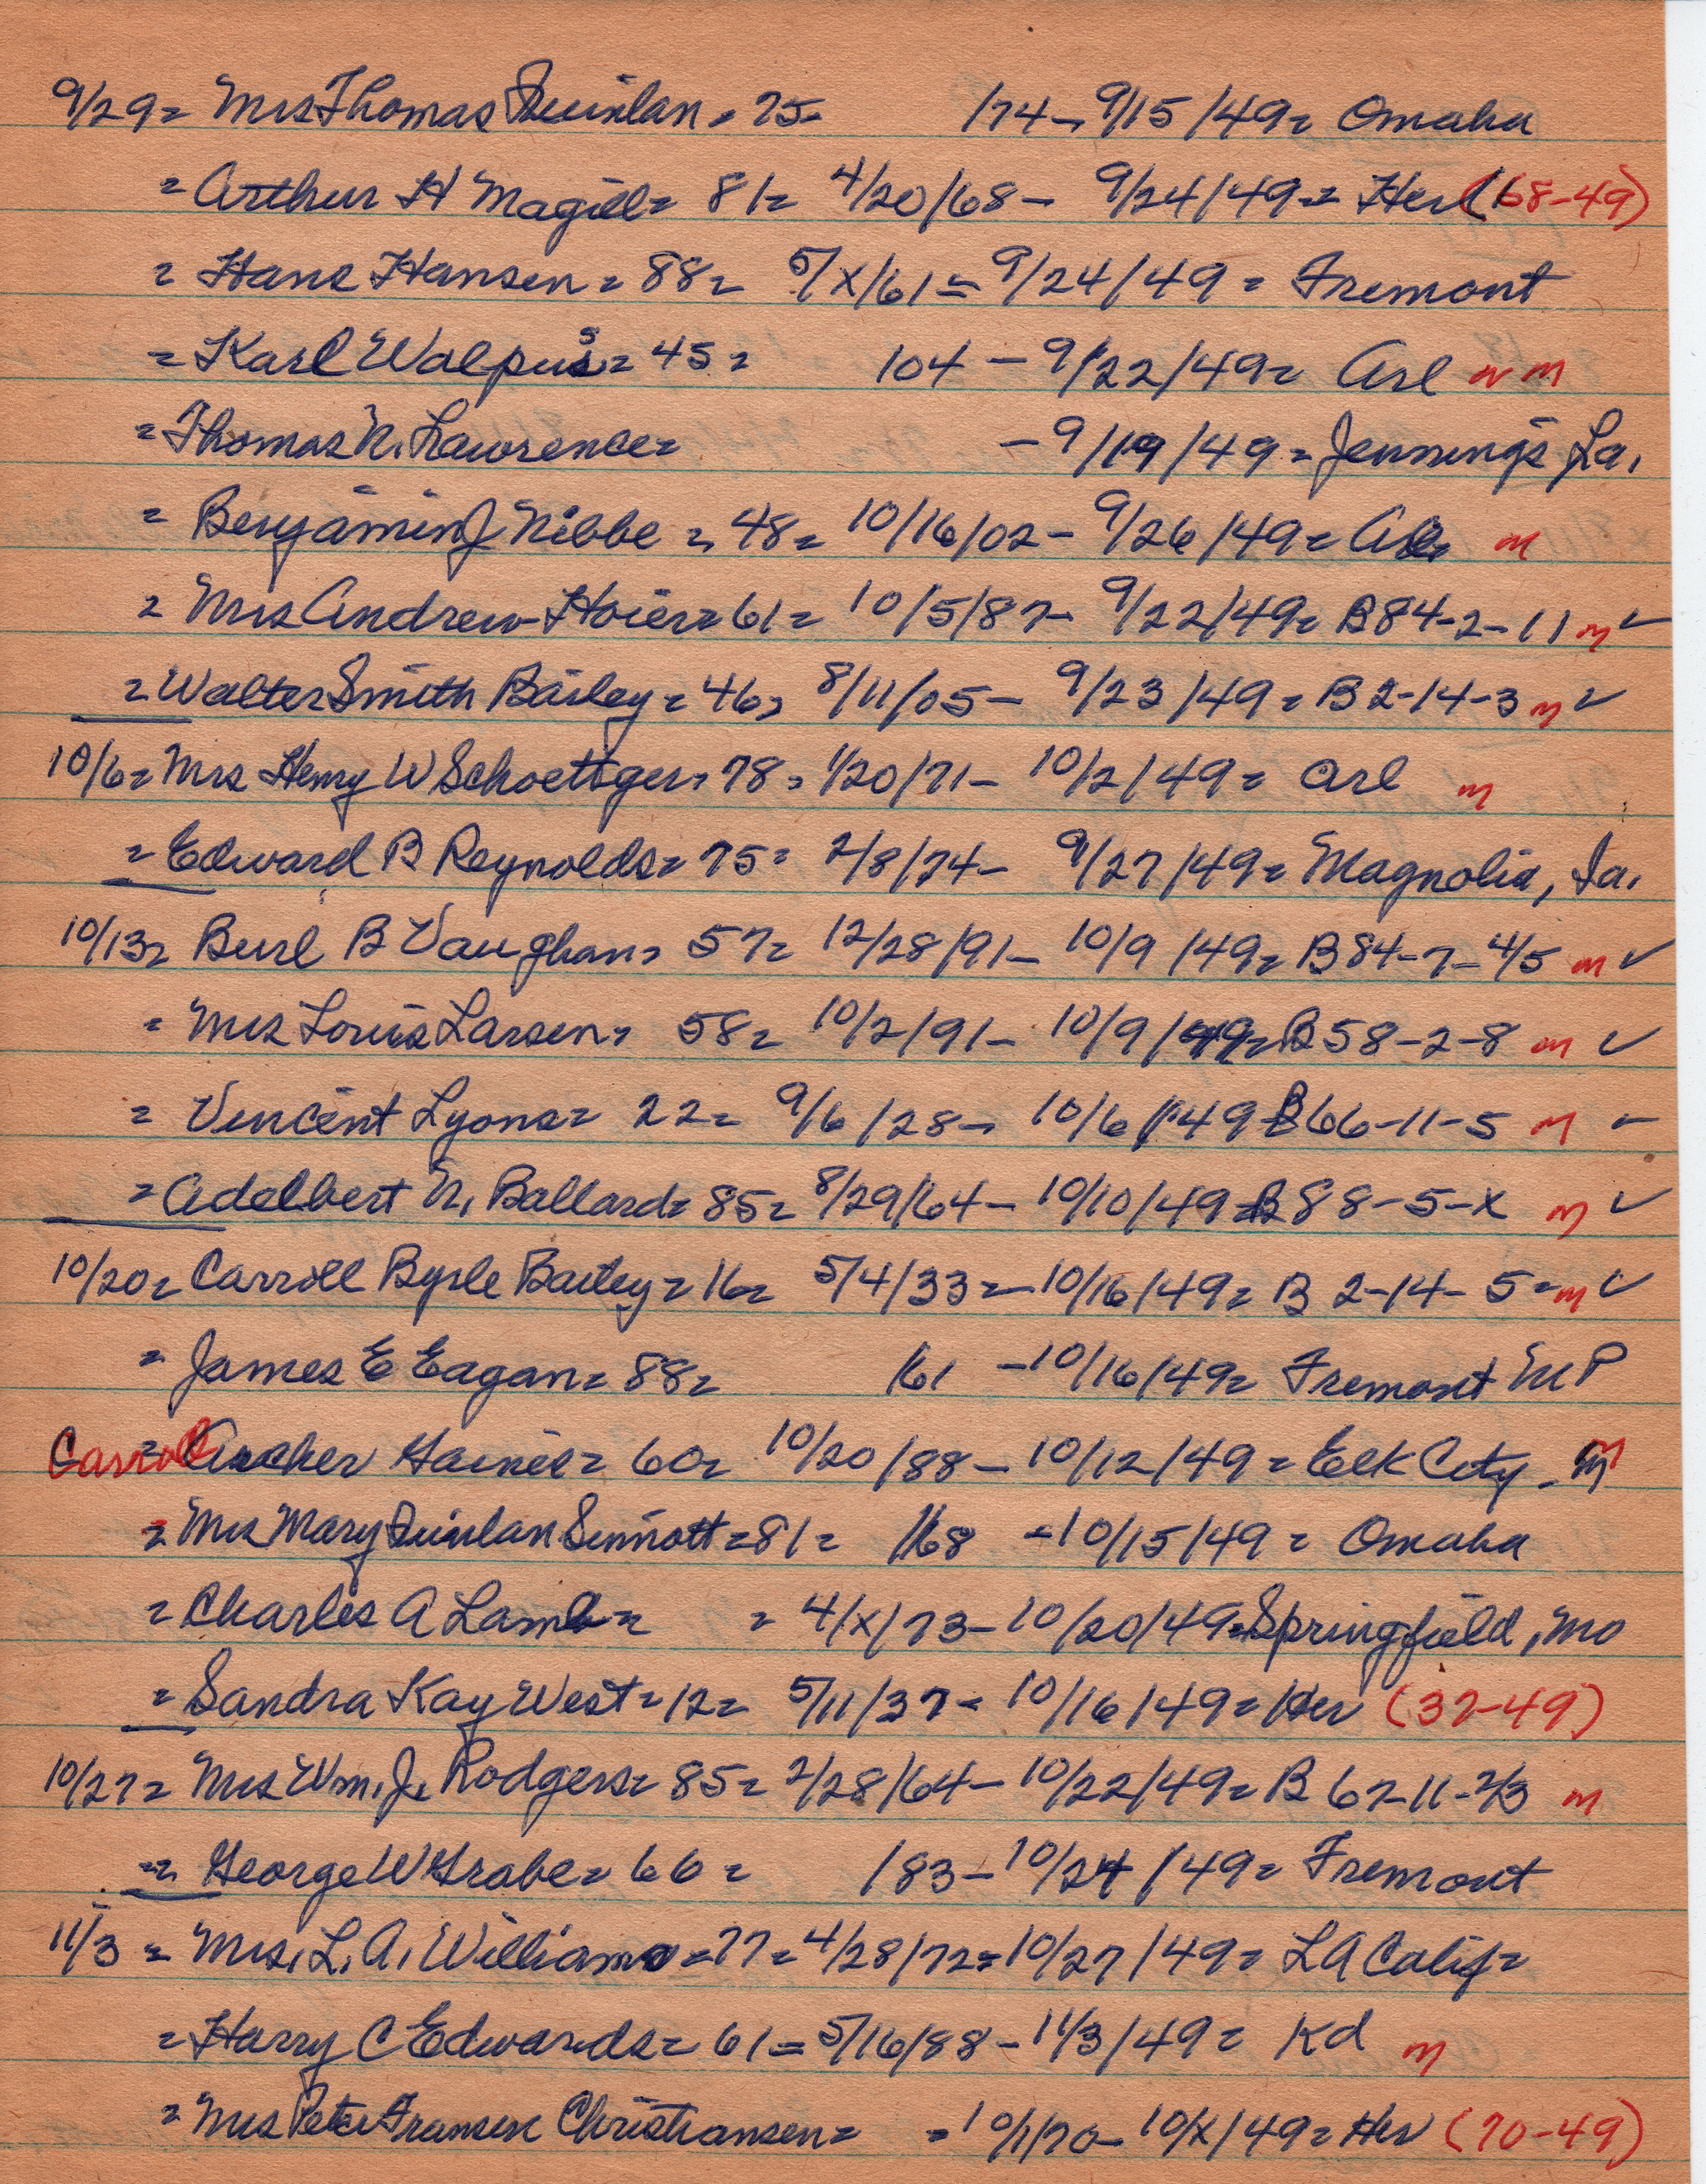 9/29= Mrs Thomas Quinlan = 75= /74 - 9/15/49= Omaha
= Arthur H Magill= 81= 4/20/68 - 9/24/49 = Her (68-49)
= Hans Hansen = 88= 5/X/61 = 9/24/49 = Fremont
= Karl Walpus = 45 = /04 - 9/22/49= Arl m
= Thomas N. Lawrence= - 9/19/49 = Jennings La.
= Benjamin J Nibbe = 48= 10/16/02 - 9/26/49= m
= Mrs Andrew Hoier= 61= 10/5/87- 9/22/49= B84-2-11 m ✓
= Walter Smith Bailey = 46= 8/11/05 - 9/23/49 = B 2-14-3 m ✓
10/6= Mrs Henry W Schoettger= 78= 1/20/71- 10/2/49= Arl m
= Edward B Reynolds= 75= 2/8/74 - 9/27/49= Magnolia, Ia.
10/13= Burl B Vaughan= 57= 12/28/91- 10/9/49= B84-7-4/5 m ✓
= Mrs Louis Larsen= 58= 10/2/91- 10/9/49= B58-2-8 m ✓
= Vincent Lyons= 22= 9/6/28- 10/6/49 B66-11-5 m ✓
= Adelbert N. Ballard= 85= 8/29/64- 10/10/49 = B88-5-X m ✓
10/20= Carroll Byrle Bailey = 16= 5/4/33 = 10/16/49= B 2-14-5= m ✓
= James E Eagan= 88= /61 - 10/16/49= Fremont MP
Carroll = Haines= 60= 10/20/88 - 10/12/49 = Elk City - m
= Mrs Mary Quinlan Sinnott = 81= /68 - 10/15/49 = Omaha
= Charles A Lamb = = 4/X/73- 10/20/49= Springfield, Mo
= Sandra Kay West= 12= 5/11/37- 10/16/49= Her (37-49)
10/27= Mrs Wm. J. Rodgers= 85= 2/28/64- 10/22/49= B 67-11-2/3 m
= George W Grabe= 66= /83- 10/24/49= Fremont
11/3 = Mrs. L. A. Williams = 77= 4/28/72= 10/27/49= LA Calif=
= Harry C Edwards= 61= 5/16/88 - 11/3/49= Kd m
= Mrs Peter Fransen Christiansen= = 10/1/70- 10/X/49= Her (70-49)